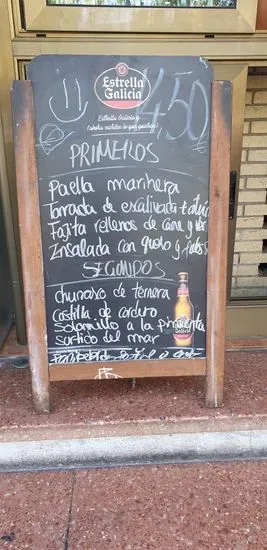 Estrella
Galicia
Estrella Galicia y
450
PRIMEROS
Paella marinera
Torrada de escalivada + atún
Fajita rellenos de carne y ver
Insalada con queso y frutos
SEGUNDOS
churrasco de ternera
Costilla de cordero
Solomillo a la pimienta
surtido del mar